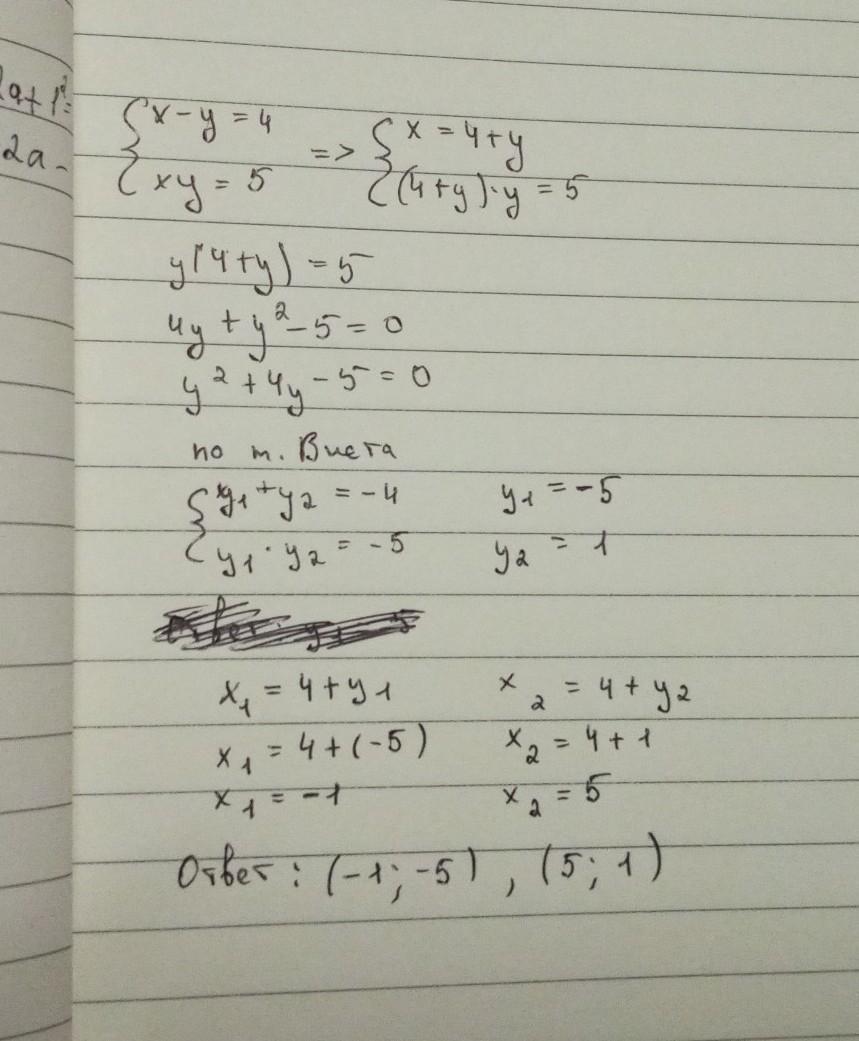 2a+1²=
2a-
{x-y=4 => {x=4+y
{xy=5 {(4+y)·y=5
y(4+y)=5
4y+y²-5=0
y²+4y-5=0
по т. Виета
{y₁+y₂=-4 y₁=-5
{y₁·y₂=-5 y₂=1
x₁=4+y₁ x₂=4+y₂
x₁=4+(-5) x₂=4+1
x₁=-1 x₂=5
Ответ: (-1;-5), (5;1)